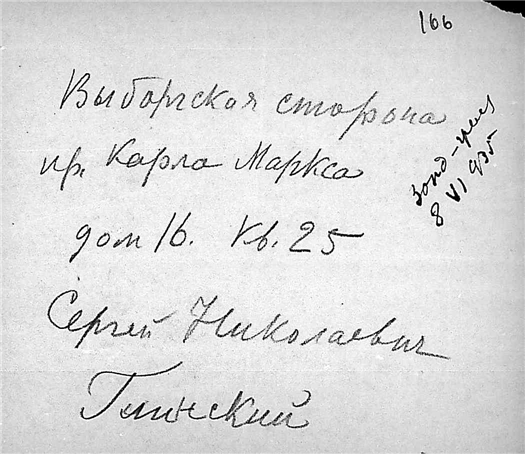 166
Выборгская сторона
пр. Карла Маркса
дом 16. кв. 25
Сергей Николаевич
8 VI 935